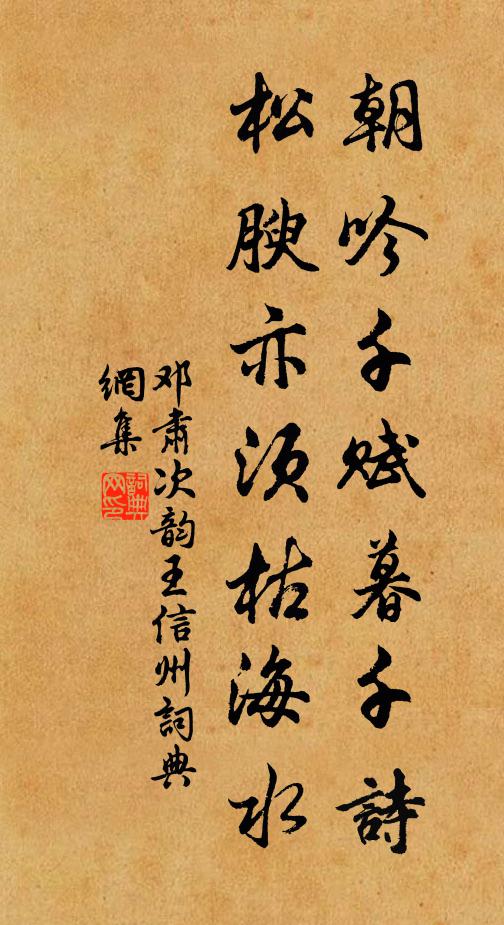 朝吟千赋暮千詩
松腴亦须枯海水
邓肅次韵王信州詞典
網集
詞典
网印